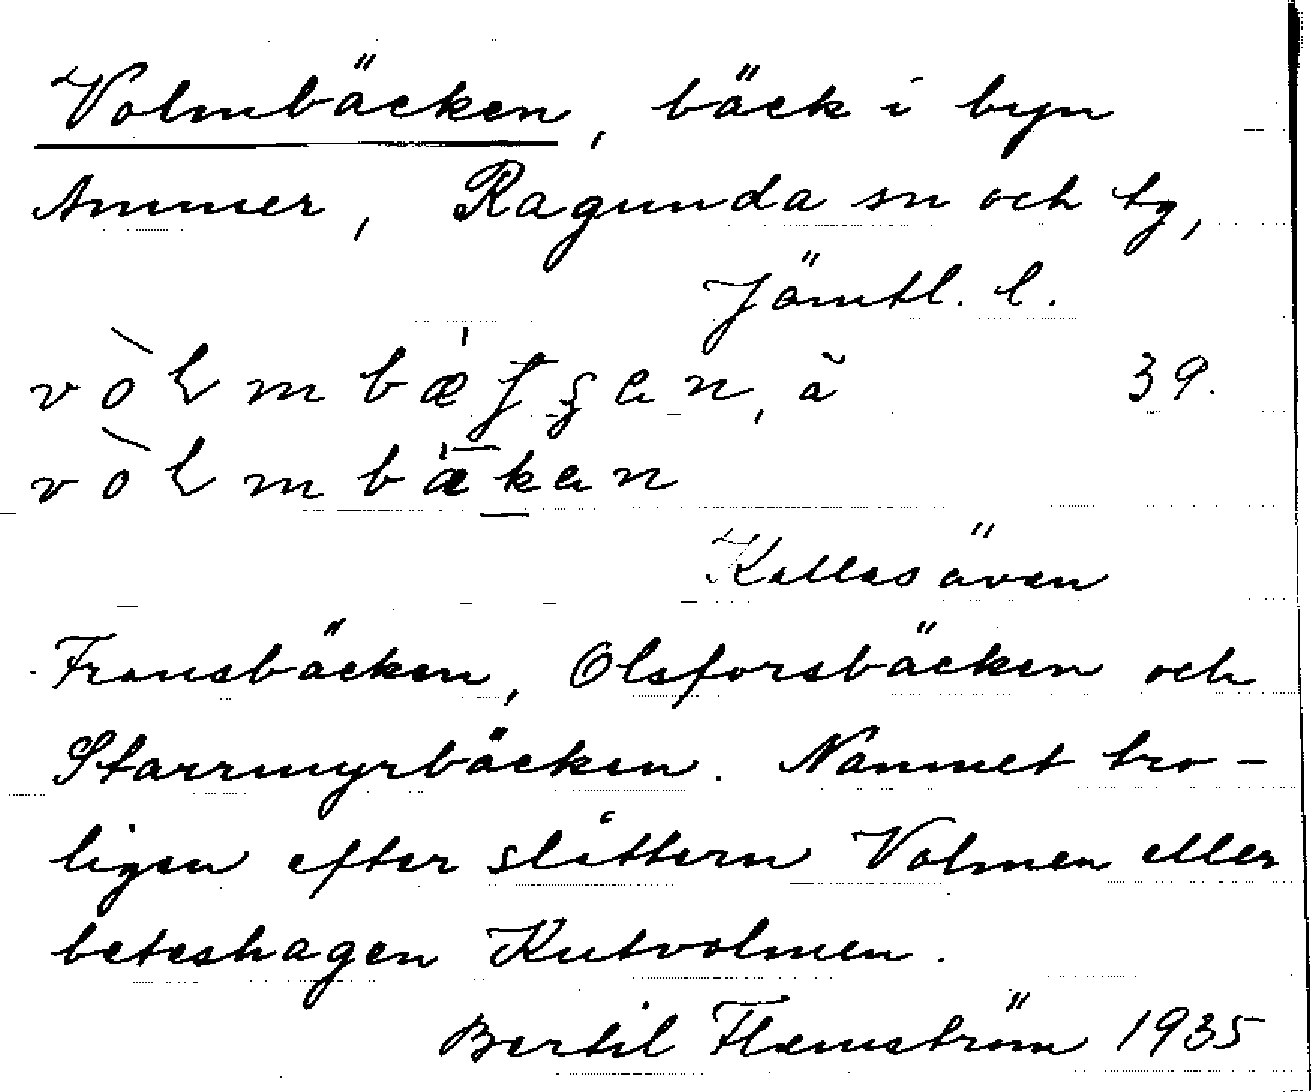 Volmbäcken, bäck i byn
Ammer, Ragunda sn och tg,
Jämtl. l.
39.
Kallas även
Fransbäcken, Olsforsbäcken och
Starrmyrbäcken. Namnet tro-
ligen efter slåttern Volmen eller
beteshagen Kutvolmen.
Bertil Flemström 1935